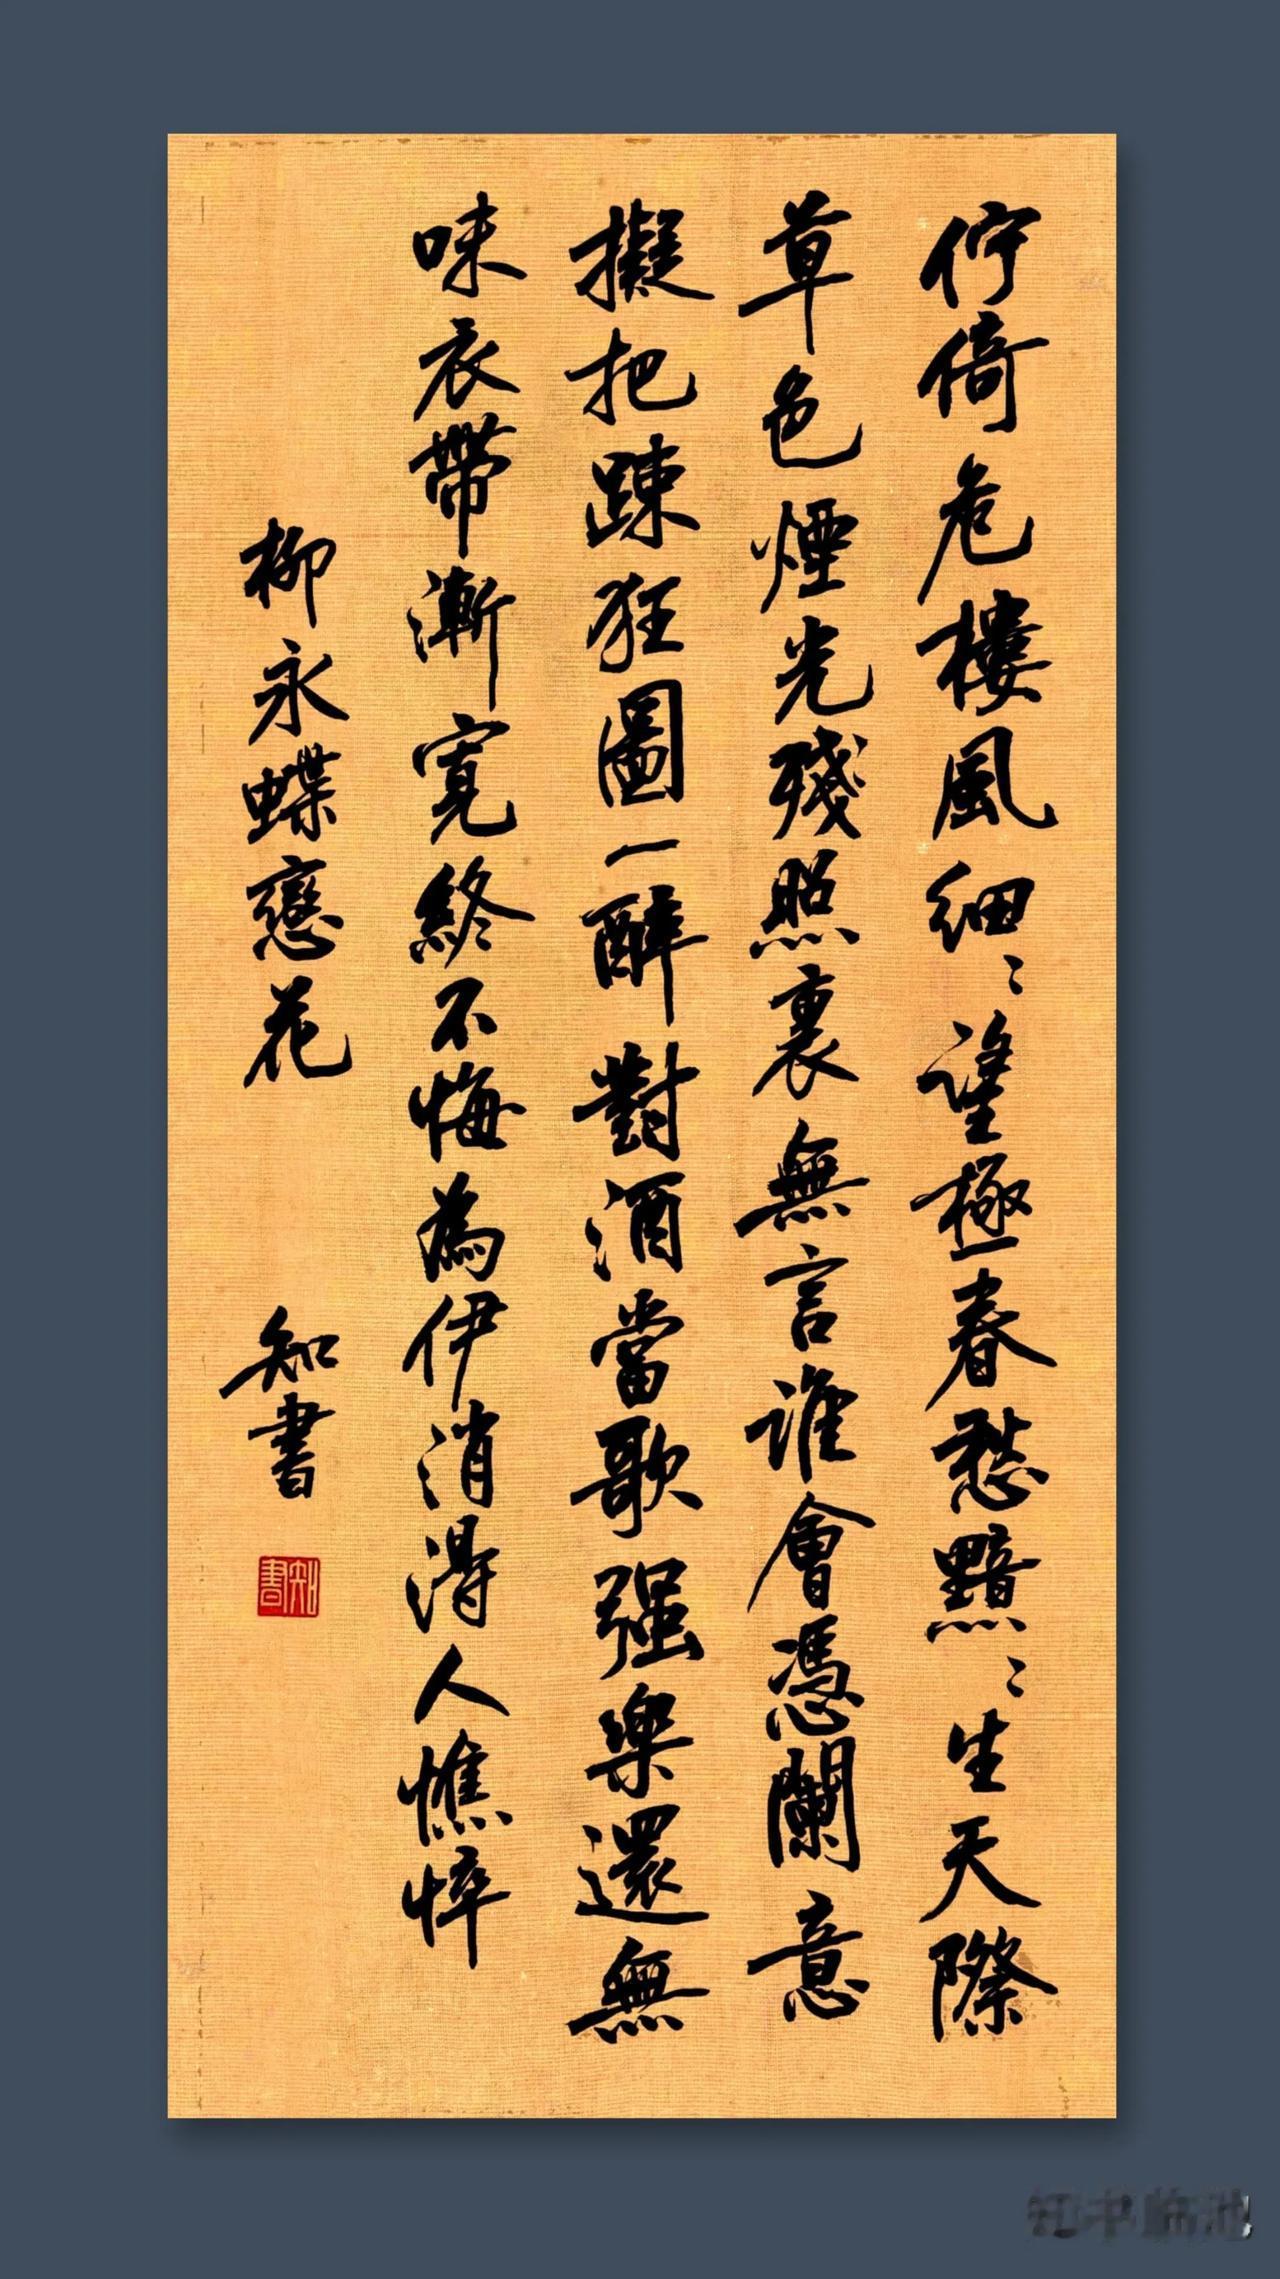 佇倚危樓風細〻望極春愁黯〻生天際
草色煙光殘照裏無言誰會憑闌意
擬把踈狂圖一醉對酒當歌强樂還無
味衣帶漸寬終不悔為伊消得人憔悴
柳永蝶戀花 知書
知書
知书临池